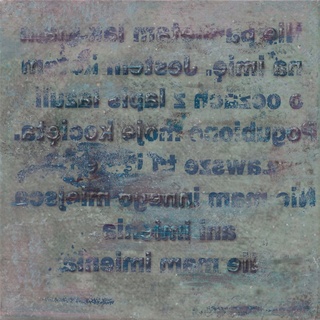 Nie pamiętam jak mam
na imię. Jestem
o oczach z lapis lazuli
Pogubione moje kocięta.
zawsze
Nie mam innego miejsca
ani imienia
Nie mam imienia